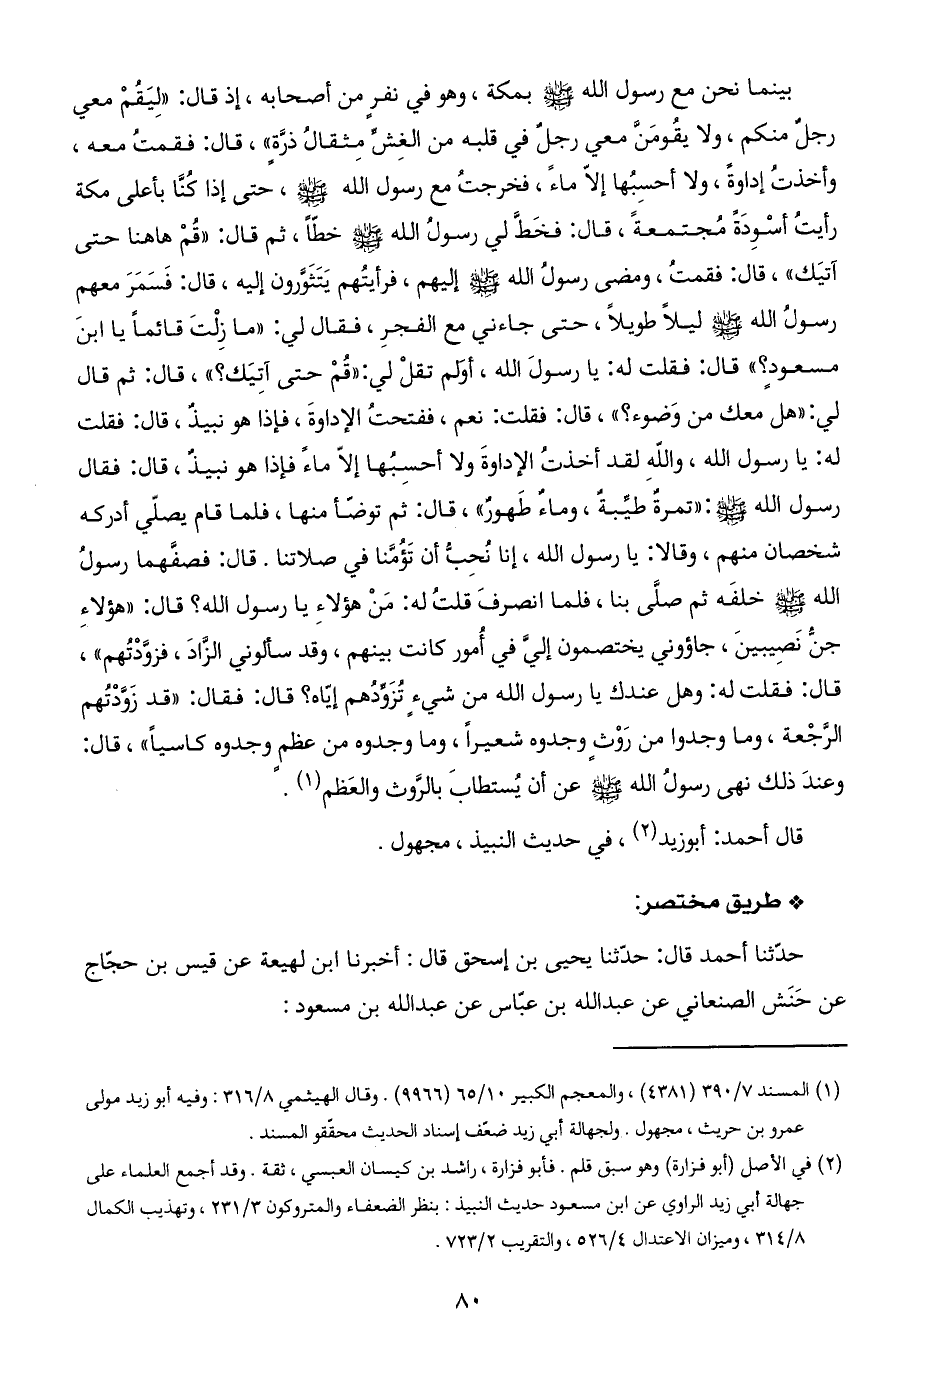 بينما نحن مع رسول الله ﷺ بمكة ، وهو في نفرٍ من أصحابه ، إذ قال: «لِيَقُمْ معي
رجلٌ منكم ، ولا يقُومَنَّ معي رجلٌ في قلبه من الغِشِّ مِثقالُ ذرَّة» ، قال: فقمتُ معه ،
وأخذتُ إداوةً ، ولا أحسِبُها إلاّ ماءً ، فخرجتُ مع رسول الله ﷺ ، حتى إذا كُنَّا بأعلى مكة
رأيتُ أسْوِدَةً مُجتمعةً ، قال: فخَطَّ لي رسولُ الله ﷺ خطّاً ، ثم قال: «قُمْ هاهنا حتى
آتيَك» ، قال: فقمتُ ، ومضى رسولُ الله ﷺ إليهم ، فرأيتُهم يَتَثَوَّرون إليه ، قال: فَسَمَرَ معهم
رسولُ الله ﷺ ليلاً طويلاً ، حتى جاءني مع الفجر ، فقال لي: «ما زِلْتَ قائماً يا ابنَ
مسعود؟» قال: فقلت له: يا رسولَ الله ، أولَم تقلْ لي:«قُمْ حتى آتِيَك؟» ، قال: ثم قال
لي:«هل معك من وَضوء؟» ، قال: فقلت: نعم ، ففتحتُ الإداوةَ ، فإذا هو نبيذٌ ، قال: فقلت
له: يا رسول الله ، واللهِ لقد أخذتُ الإداوةَ ولا أحسِبُها إلاّ ماءً فإذا هو نبيذٌ ، قال: فقال
رسول الله ﷺ :«تمرةٌ طيِّبةٌ ، وماءٌ طَهورٌ» ، قال: ثم توضّأ منها ، فلما قام يصلّي أدركه
شخصان منهم ، وقالا: يا رسول الله ، إنا نُحِبُّ أن تَؤُمَّنا في صلاتنا . قال: فصفَّهما رسولُ
الله ﷺ خلفَه ثم صلَّى بنا ، فلما انصرفَ قلتُ له: مَنْ هؤلاء يا رسول الله؟ قال: «هؤلاءِ
جنُّ نَصِيبينَ ، جاؤوني يختصمون إليَّ في أُمور كانت بينهم ، وقد سألوني الزَّادَ ، فزوَّدْتُهم» ،
قال: فقلت له: وهل عندك يا رسول الله من شيءٍ تُزَوِّدُهم إيّاه؟ قال: فقال: «قد زَوَّدْتُهم
الرَّجْعة ، وما وجدوا من رَوْثٍ وجدوه شعيراً ، وما وجدوه من عظمٍ وجدوه كاسياً» ، قال:
وعندَ ذلك نهى رسولُ الله ﷺ عن أن يُستطابَ بالرَّوث والعَظم(١) .
قال أحمد: أبوزيد(٢) ، في حديث النبيذ ، مجهول .
❖ طريق مختصر:
حدّثنا أحمد قال: حدّثنا يحيى بن إسحق قال : أخبرنا ابن لهيعة عن قيس بن حجّاج
عن حَنَش الصنعاني عن عبدالله بن عبّاس عن عبدالله بن مسعود :
(١) المسند ٣٩٠/٧ (٤٣٨١) ، والمعجم الكبير ٦٥/١٠ (٩٩٦٦) . وقال الهيثمي ٣١٦/٨ : وفيه أبو زيد مولى
عمرو بن حريث ، مجهول . ولجهالة أبي زيد ضعّف إسناد الحديث محقّقو المسند .
(٢) في الأصل (أبو فزارة) وهو سبق قلم . فأبو فزارة ، راشد بن كيسان العبسي ، ثقة . وقد أجمع العلماء على
جهالة أبي زيد الراوي عن ابن مسعود حديث النبيذ : ينظر الضعفاء والمتروكون ٢٣١/٣ ، وتهذيب الكمال
٣١٤/٨ ، وميزان الاعتدال ٥٢٦/٤ ، والتقريب ٧٢٣/٢ .
٨٠